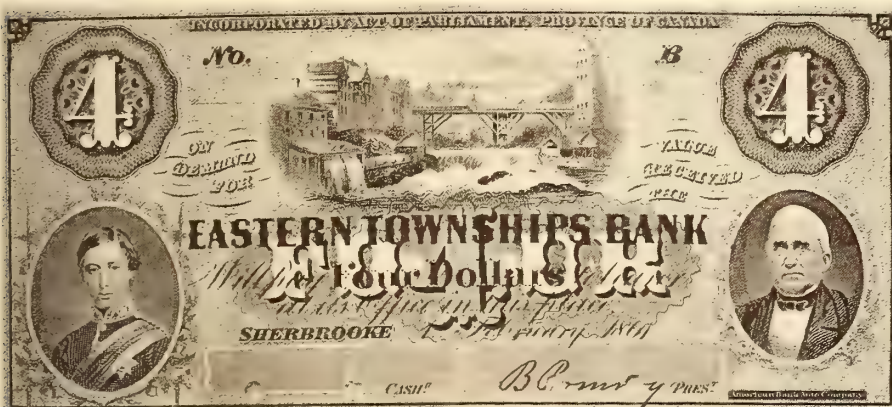 INCORPORATED BY ACT OF PARLIAMENT, PROVINCE OF CANADA
4 No. B 4
ON DEMAND FOR
VALUE RECEIVED THE
EASTERN TOWNSHIPS BANK
Will pay Four Dollars
FOUR
at its office in
SHERBROOKE
CASHR B Pomroy PREST
American Bank Note Company